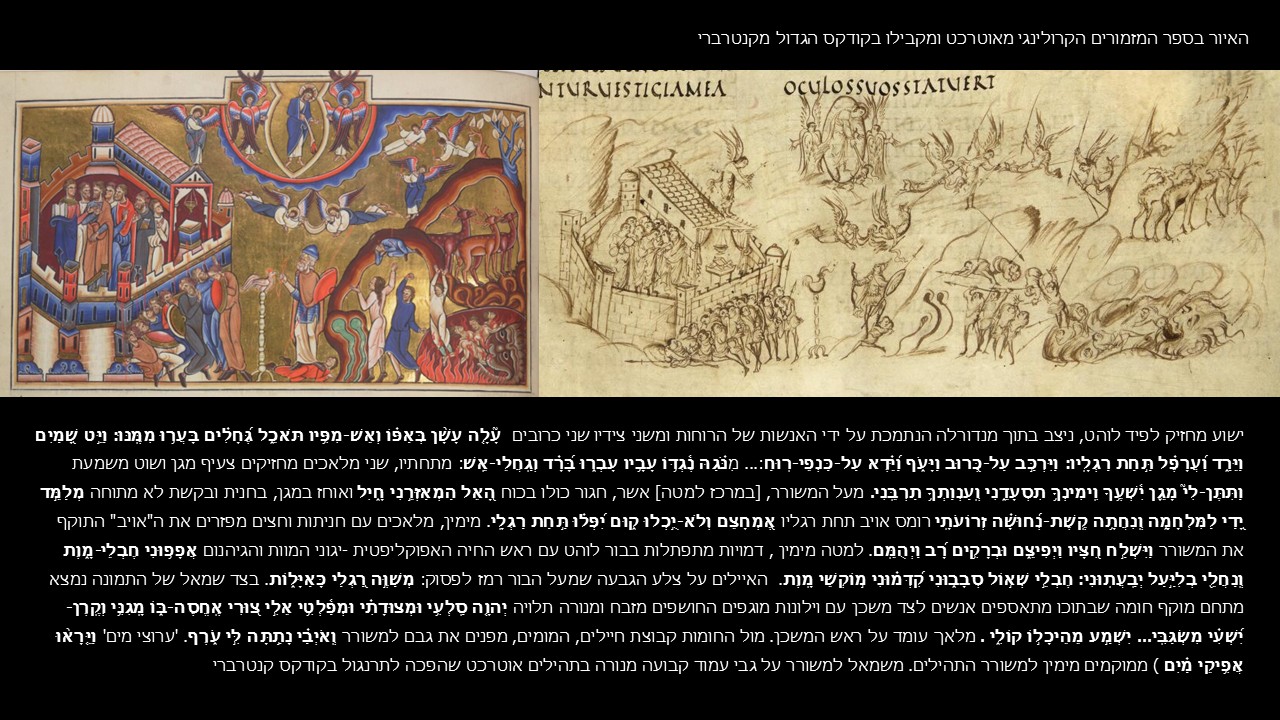 האיור בספר המזמורים הקרולינגי מאוטרכט ומקבילו בקודקס הגדול מקנטרברי
NTURUESTIGIAMEA OCULOSSUOSSTATUERT
ישוע מחזיק לפיד לוהט, ניצב בתוך מנדורלה הנתמכת על ידי האנשות של הרוחות ומשני צידיו שני כרובים עָ֘לָ֤ה עָשָׁ֨ן בְּאַפּ֗וֹ וְאֵשׁ-מִפִּ֥יו תֹּאכֵ֑ל גֶּ֝חָלִ֗ים בָּעֲר֥וּ מִמֶּֽנּוּ: וַיֵּ֣ט שָׁ֭מַיִם
וַיֵּרַ֑ד וַ֝עֲרָפֶ֗ל תַּ֣חַת רַגְלָֽיו: וַיִּרְכַּ֣ב עַל-כְּ֭רוּב וַיָּעֹ֑ף וַ֝יֵּ֗דֶא עַל-כַּנְפֵי-רֽוּחַ:... מִנֹּ֗גַהּ נֶ֫גְדּ֥וֹ עָבָ֥יו עָבְר֑וּ בָּ֝רָ֗ד וְגַֽחֲלֵי-אֵֽשׁ: מתחתיו, שני מלאכים מחזיקים צעיף מגן ושוט משמעת
וַתִּתֶּן-לִי֮ מָגֵ֪ן יִ֫שְׁעֶ֥ךָ וִֽימִינְךָ֥ תִסְעָדֵ֑נִי וְֽעַנְוַתְךָ֥ תַרְבֵּֽנִי. מעל המשורר, [במרכז למטה] אשר, חגור כולו בכוח הָ֭אֵל הַמְאַזְּרֵ֣נִי חָ֑יִל ואוחז במגן, בחנית ובקשת לא מתוחה מְלַמֵּ֣ד
יָ֭דַי לַמִּלְחָמָ֑ה וְֽנִחֲתָ֥ה קֶֽשֶׁת-נְ֝חוּשָׁ֗ה זְרוֹעֹתָֽי רומס אויב תחת רגליו אֶ֭מְחָצֵם וְלֹא-יֻ֣כְלוּ ק֑וּם יִ֝פְּל֗וּ תַּ֣חַת רַגְלָֽי. מימין, מלאכים עם חניתות וחצים מפזרים את ה"אויב" התוקף
את המשורר וַיִּשְׁלַ֣ח חִ֭צָּיו וַיְפִיצֵ֑ם וּבְרָקִ֥ים רָ֝ב וַיְהֻמֵּֽם. למטה מימין , דמויות מתפתלות בבור לוהט עם ראש החיה האפוקליפטית -יגוני המוות והגיהנום אֲפָפ֥וּנִי חֶבְלֵי-מָ֑וֶת
וְֽנַחֲלֵ֖י בְלִיַּ֣עַל יְבַֽעֲתֽוּנִי: חֶבְלֵ֣י שְׁא֣וֹל סְבָב֑וּנִי קִ֝דְּמ֗וּנִי מ֣וֹקְשֵׁי מָֽוֶת. האיילים על צלע הגבעה שמעל הבור רמז לפסוק: מְשַׁוֶּ֣ה רַ֭גְלַי כָּאַיָּל֑וֹת. בצד שמאל של התמונה נמצא
מתחם מוקף חומה שבתוכו מתאספים אנשים לצד משכן עם וילונות מוגפים החושפים מזבח ומנורה תלויה יְהוָ֤ה סַֽלְעִ֥י וּמְצוּדָתִ֗י וּמְפַ֫לְטִ֥י אֵלִ֣י צ֭וּרִי אֶֽחֱסֶה-בּ֑וֹ מָֽגִנִּ֥י וְקֶֽרֶן-
יִ֝שְׁעִ֗י מִשְׂגַּבִּֽי... יִשְׁמַ֣ע מֵהֵיכָל֣וֹ קוֹלִ֑י . מלאך עומד על ראש המשכן. מול החומות קבוצת חיילים, המומים, מפנים את גבם למשורר וְֽאֹיְבַ֗י נָתַ֣תָּה לִּ֣י עֹ֑רֶף. 'ערוצי מים' וַיֵּ֤רָא֨וּ
אֲפִ֥יקֵי מַ֗יִם ) ממוקמים מימין למשורר התהילים. משמאל למשורר על גבי עמוד קבועה מנורה בתהילים אוטרכט שהפכה לתרנגול בקודקס קנטרברי